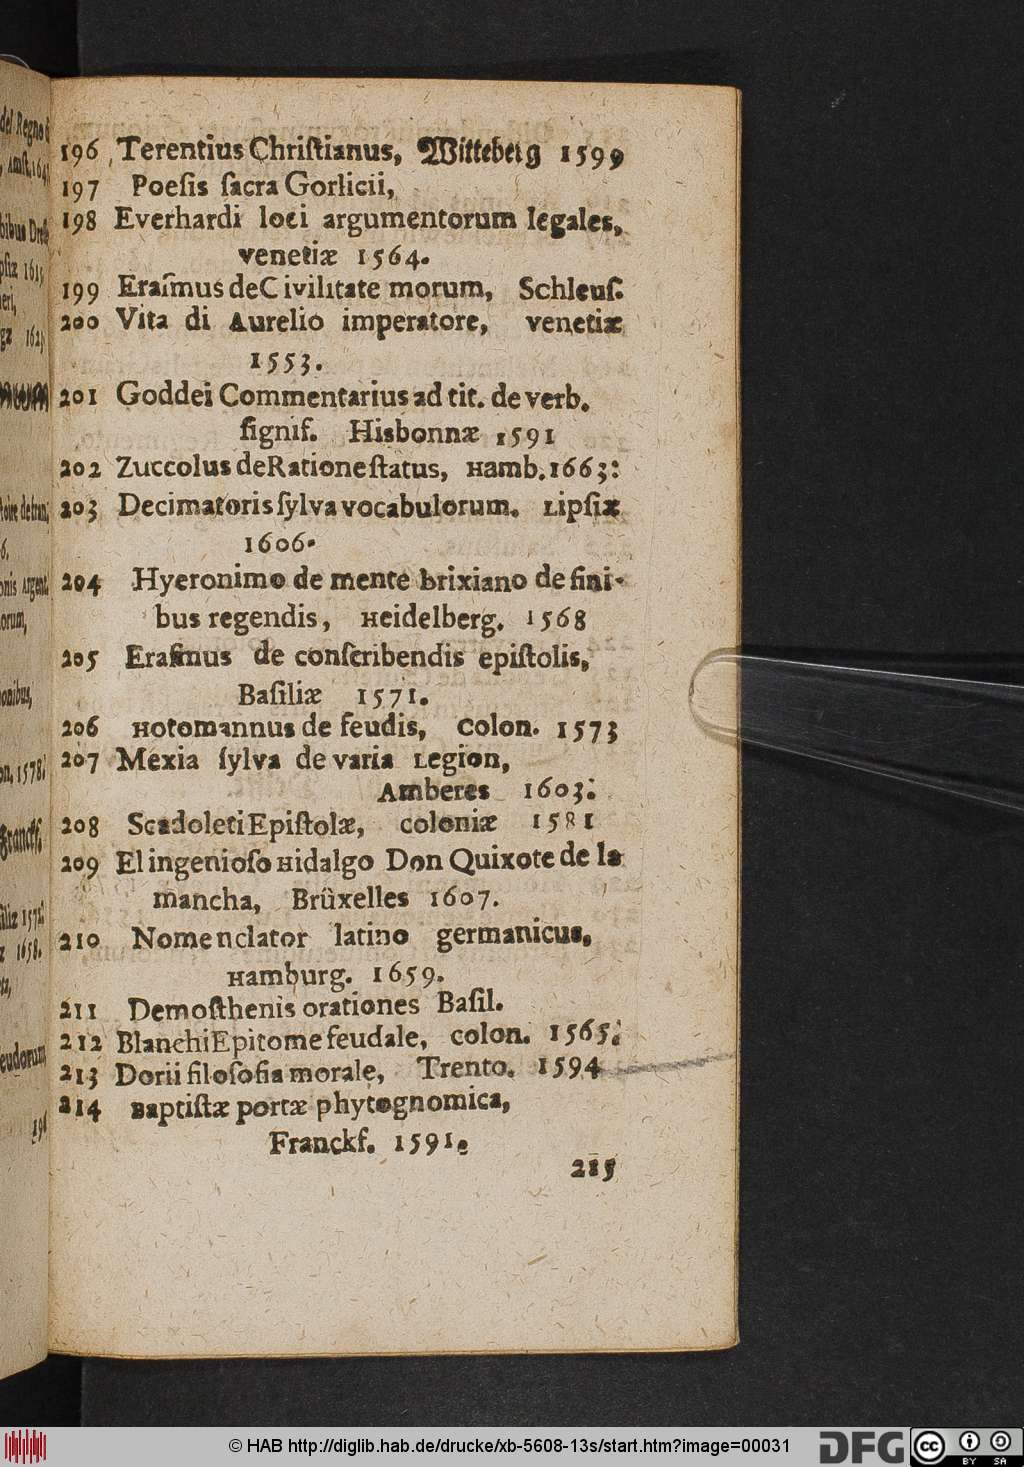 196 Terentius Chriſtianus, Witteberg 1599
197 Poeſis ſacra Gorlicii,
198 Everhardi loci argumentorum legales,
venetiæ 1564.
199 Eraſmus deCivilitate morum, Schleuſ.
200 Vita di Aurelio imperatore, venetiæ
1553.
201 Goddei Commentarius ad tit. de verb.
ſignif. Hisbonnæ 1591
202 Zuccolus deRationeſtatus, Hamb. 1663:
203 Decimatoris ſylva vocabulorum. Lipſiæ
1606.
204 Hyeronimo de mente brixiano de fini-
bus regendis, Heidelberg. 1568
205 Eraſmus de conſcribendis epiſtolis,
Baſiliæ 1571.
206 Hotomannus de feudis, Colon. 1573
207 Mexia ſylva de varia Legion,
Amberes 1603:
208 Scadoleti Epiſtolæ, coloniæ 1581
209 El ingenioſo Hidalgo Don Quixote de la
mancha, Brûxelles 1607.
210 Nomenclator latino germanicus,
Hamburg. 1659.
211 Demoſthenis orationes Baſil.
212 Blanchi Epitome feudale, colon. 1565.
213 Dorii filoſofia morale, Trento. 1594
214 Baptiſtæ portæ phytognomica,
Franckf. 1591.
215
del Regno
1578:
Franckf.
1658.
feudorum
© HAB http://diglib.hab.de/drucke/xb-5608-13s/start.htm?image=00031
DFG
cc BY SA